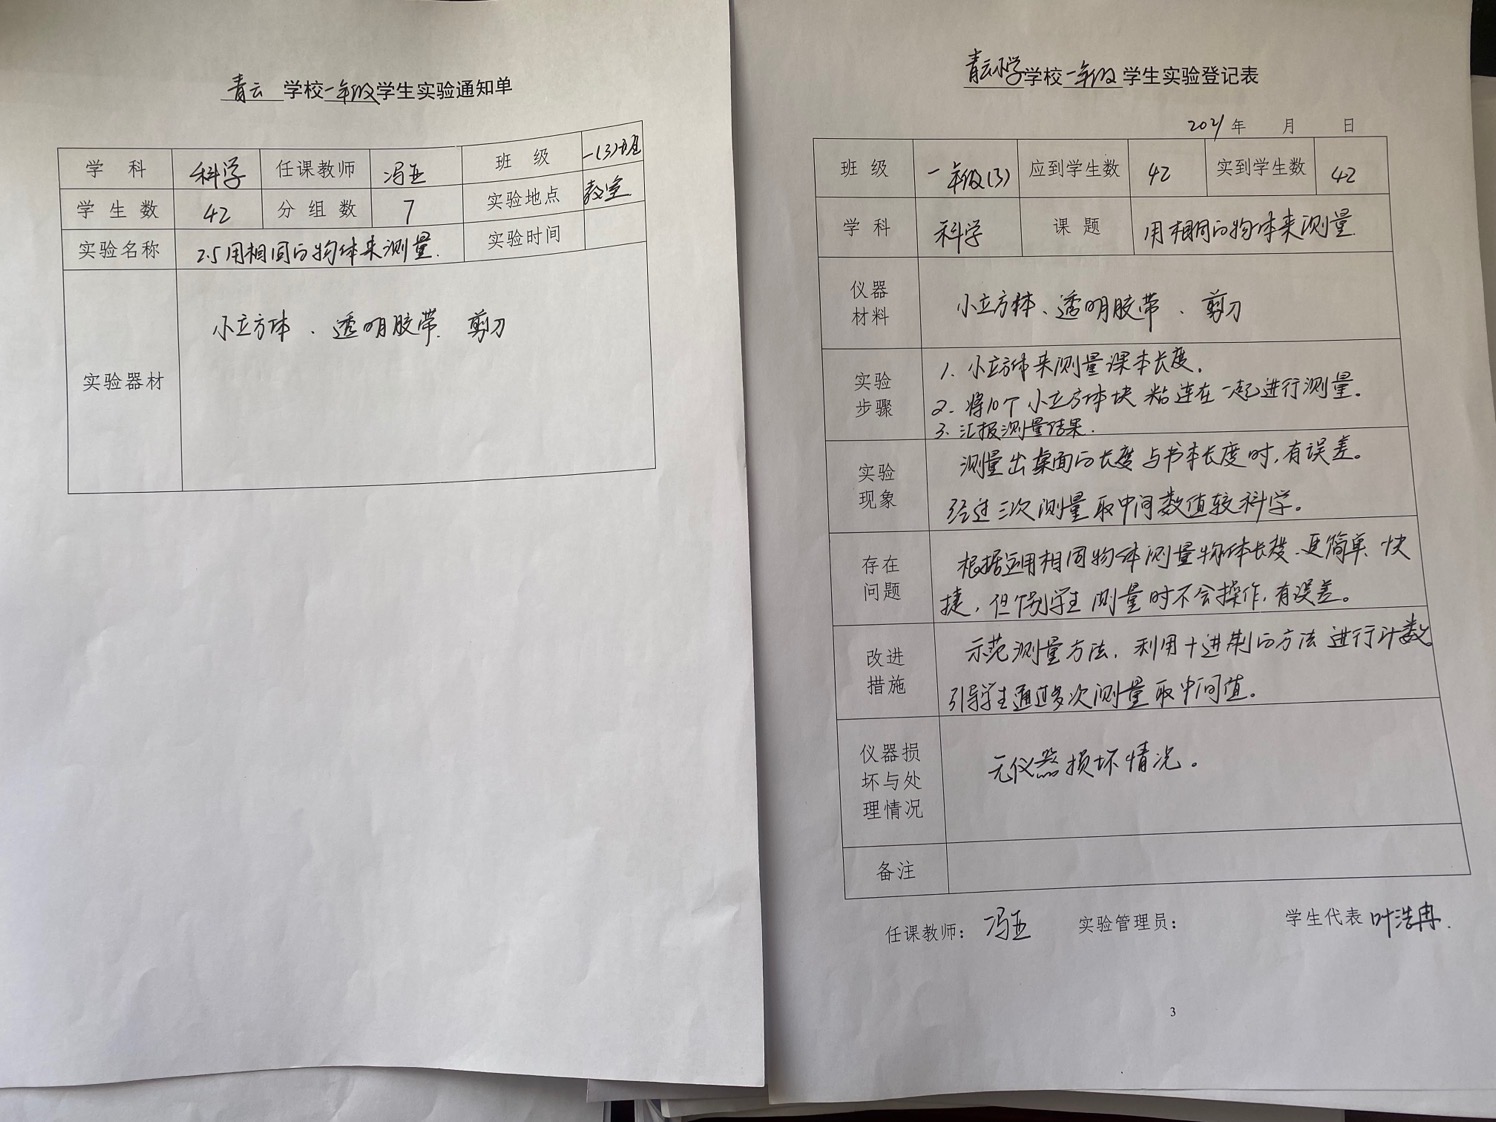 青云 学校一年级学生实验通知单
学 科 科学 任课教师 冯亚 班 级 一(3)班
学 生 数 42 分 组 数 7 实验地点 教室
实验名称 2.5用相同的物体来测量. 实验时间
实验器材 小立方体、透明胶带、剪刀
青云小学学校一年级学生实验登记表
2021年 月 日
班 级 一年级(3) 应到学生数 42 实到学生数 42
学 科 科学 课 题 用相同的物体来测量
仪器
材料
小立方体、透明胶带、剪刀
实验
步骤
1. 小立方体来测量课本长度.
2. 将10个小立方体块粘连在一起进行测量。
3. 汇报测量结果.
实验
现象
测量出桌面的长度与书本长度时,有误差。
经过三次测量取中间数值较科学。
存在
问题
根据运用相同物体测量物体长度、更简单、快
捷,但个别学生测量时不会操作,有误差。
改进
措施
示范测量方法,利用十进制的方法进行计数
引导学生通过多次测量取中间值。
仪器损
坏与处
理情况
无仪器损坏情况。
备注
任课教师: 冯亚 实验管理员: 学生代表 叶浩冉.
3